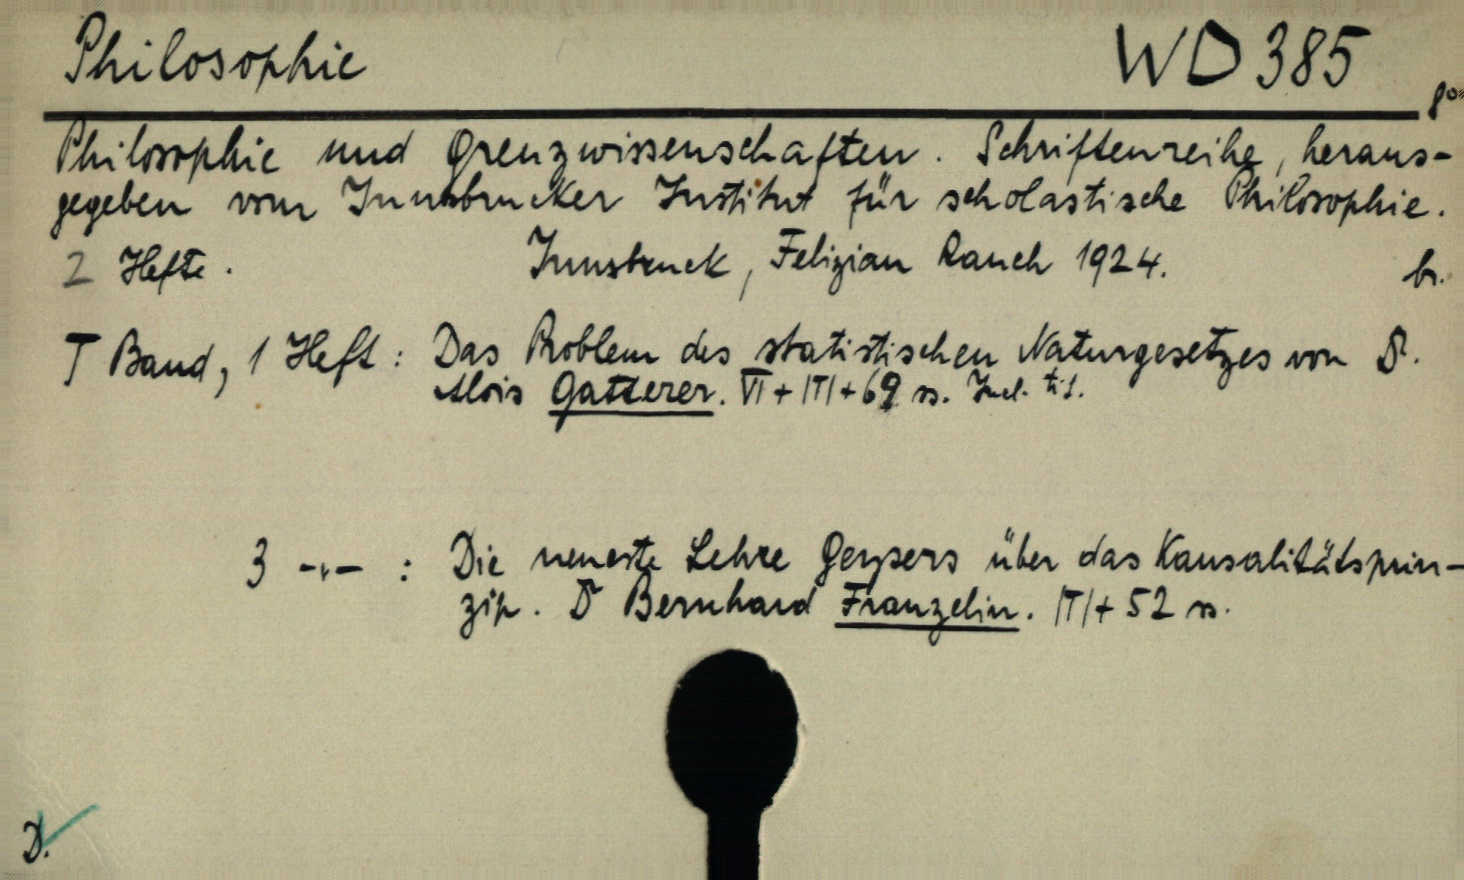 Philosophie WD 385
8°
Philosophie und Grenzwissenschaften. Schriftenreihe, heraus-
gegeben vom Innsbrucker Institut für scholastische Philosophie.
2 Hefte. Innsbruck, Felizian Rauch 1924. br.
I Band, 1 Heft: Das Problem des statistischen Naturgesetzes von Dr.
Alois Gatterer. VI + |1| + 69 ss. Incl. tit.
3 -"- : Die neueste Lehre Geysers über das Kausalitätsprin-
zip. Dr Bernhard Franzelin. |1| + 52 ss.
D.